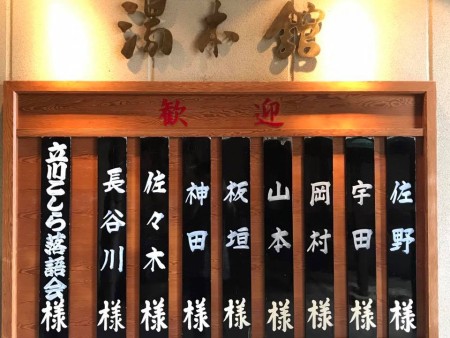 湯本館
歓迎
佐野様
宇田様
岡村様
山本様
板垣様
神田様
佐々木様
長谷川様
立川こしら落語会様